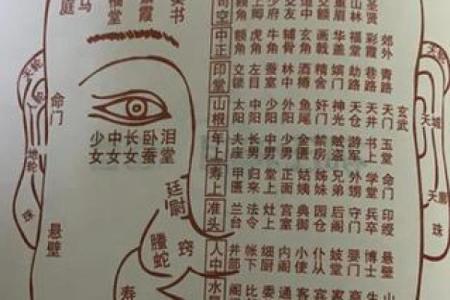 庭
马
福堂
霞
奏书
司空 额角 少府 交友 道中 圣贤
中正 额角 虎角 牛角 辅骨 玄角 画戟 华盖 福堂 彩霞 郊外
印堂 交锁 左目 蚕室 林中 酒樽 精舍 嫔门 劫路 巷路 青路
山根 太阳 中阳 少阳 外阳 鱼尾 奸门 神光 天仓 天井 天门 玄武
年上 夫座 长男 中男 少男 金匮 禁房 贼盗 游军 书上 玉堂
寿上 甲匮 归来 堂上 正面 姑姨 姊妹 兄弟 外甥 学堂 命门
准头 兰台 法令 灶上 宫室 典御 园仓 后阁 守门 兵卒 印绶
人中 井部 帐下 细厨 内阁 小使 仆从 妓堂 婴门 博士 悬壁
水星
天轮
人轮
地轮
珠
命门
悬壁
少女
中女
长女
卧蚕
泪堂
廷尉
螣蛇
窍
寿
天轮
天城
珠